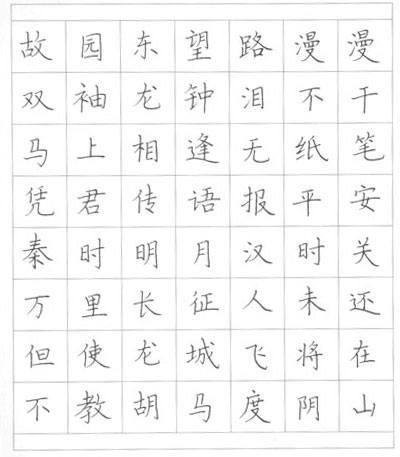 故园东望路漫漫
双袖龙钟泪不干
马上相逢无纸笔
凭君传语报平安
秦时明月汉时关
万里长征人未还
但使龙城飞将在
不教胡马度阴山